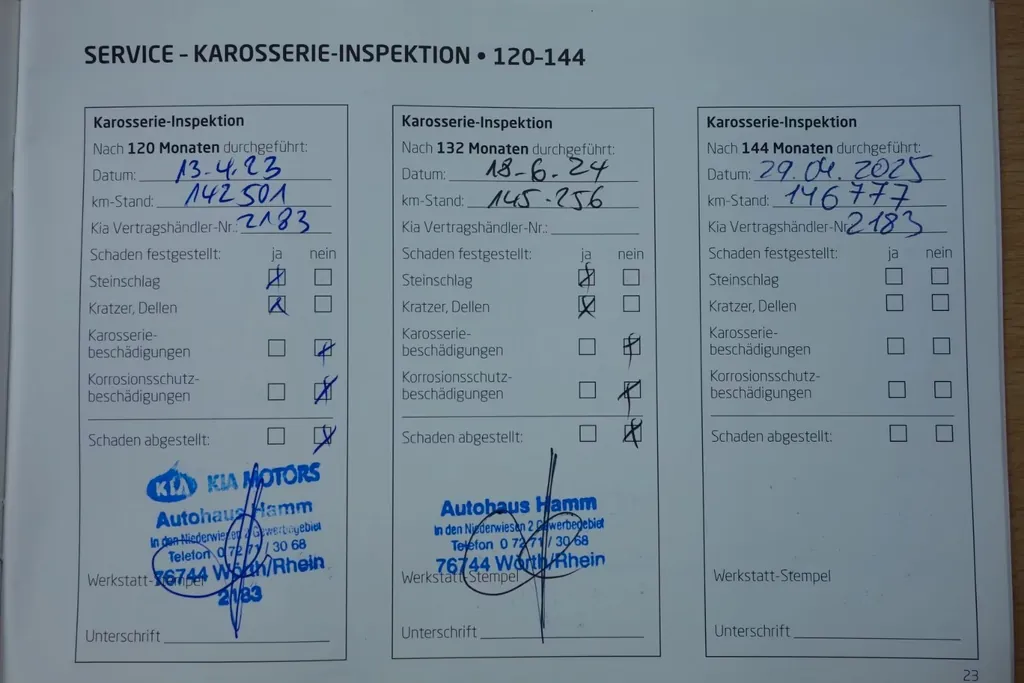 SERVICE – KAROSSERIE-INSPEKTION • 120–144
Karosserie-Inspektion
Nach 120 Monaten durchgeführt:
Datum: 13.4.23
km-Stand: 142501
Kia Vertragshändler-Nr.: 2183
Schaden festgestellt: ja nein
Steinschlag
Kratzer, Dellen
Karosserie-
beschädigungen
Korrosionsschutz-
beschädigungen
Schaden abgestellt:
KIA KIA MOTORS
Autohaus Hamm
In den Niederwiesen 2 Gewerbegebiet
Telefon 0 72 71 / 30 68
76744 Wörth/Rhein
Werkstatt-Stempel
2183
Unterschrift
Karosserie-Inspektion
Nach 132 Monaten durchgeführt:
Datum: 18-6.24
km-Stand: 145.256
Kia Vertragshändler-Nr.:
Schaden festgestellt: ja nein
Steinschlag
Kratzer, Dellen
Karosserie-
beschädigungen
Korrosionsschutz-
beschädigungen
Schaden abgestellt:
Autohaus Hamm
In den Niederwiesen 2 Gewerbegebiet
Telefon 0 72 71 / 30 68
76744 Wörth/Rhein
Werkstatt-Stempel
Unterschrift
Karosserie-Inspektion
Nach 144 Monaten durchgeführt:
Datum: 29.04.2025
km-Stand: 146777
Kia Vertragshändler-Nr. 2183
Schaden festgestellt: ja nein
Steinschlag
Kratzer, Dellen
Karosserie-
beschädigungen
Korrosionsschutz-
beschädigungen
Schaden abgestellt:
Werkstatt-Stempel
Unterschrift
23